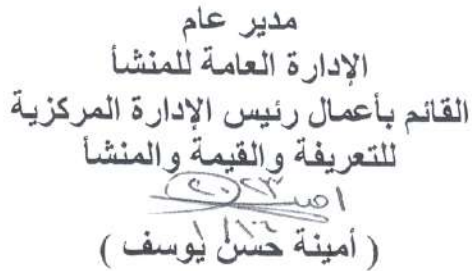 مدير عام
الإدارة العامة للمنشأ
القائم بأعمال رئيس الإدارة المركزية
للتعريفة والقيمة والمنشأ
( أمينة حسن يوسف )